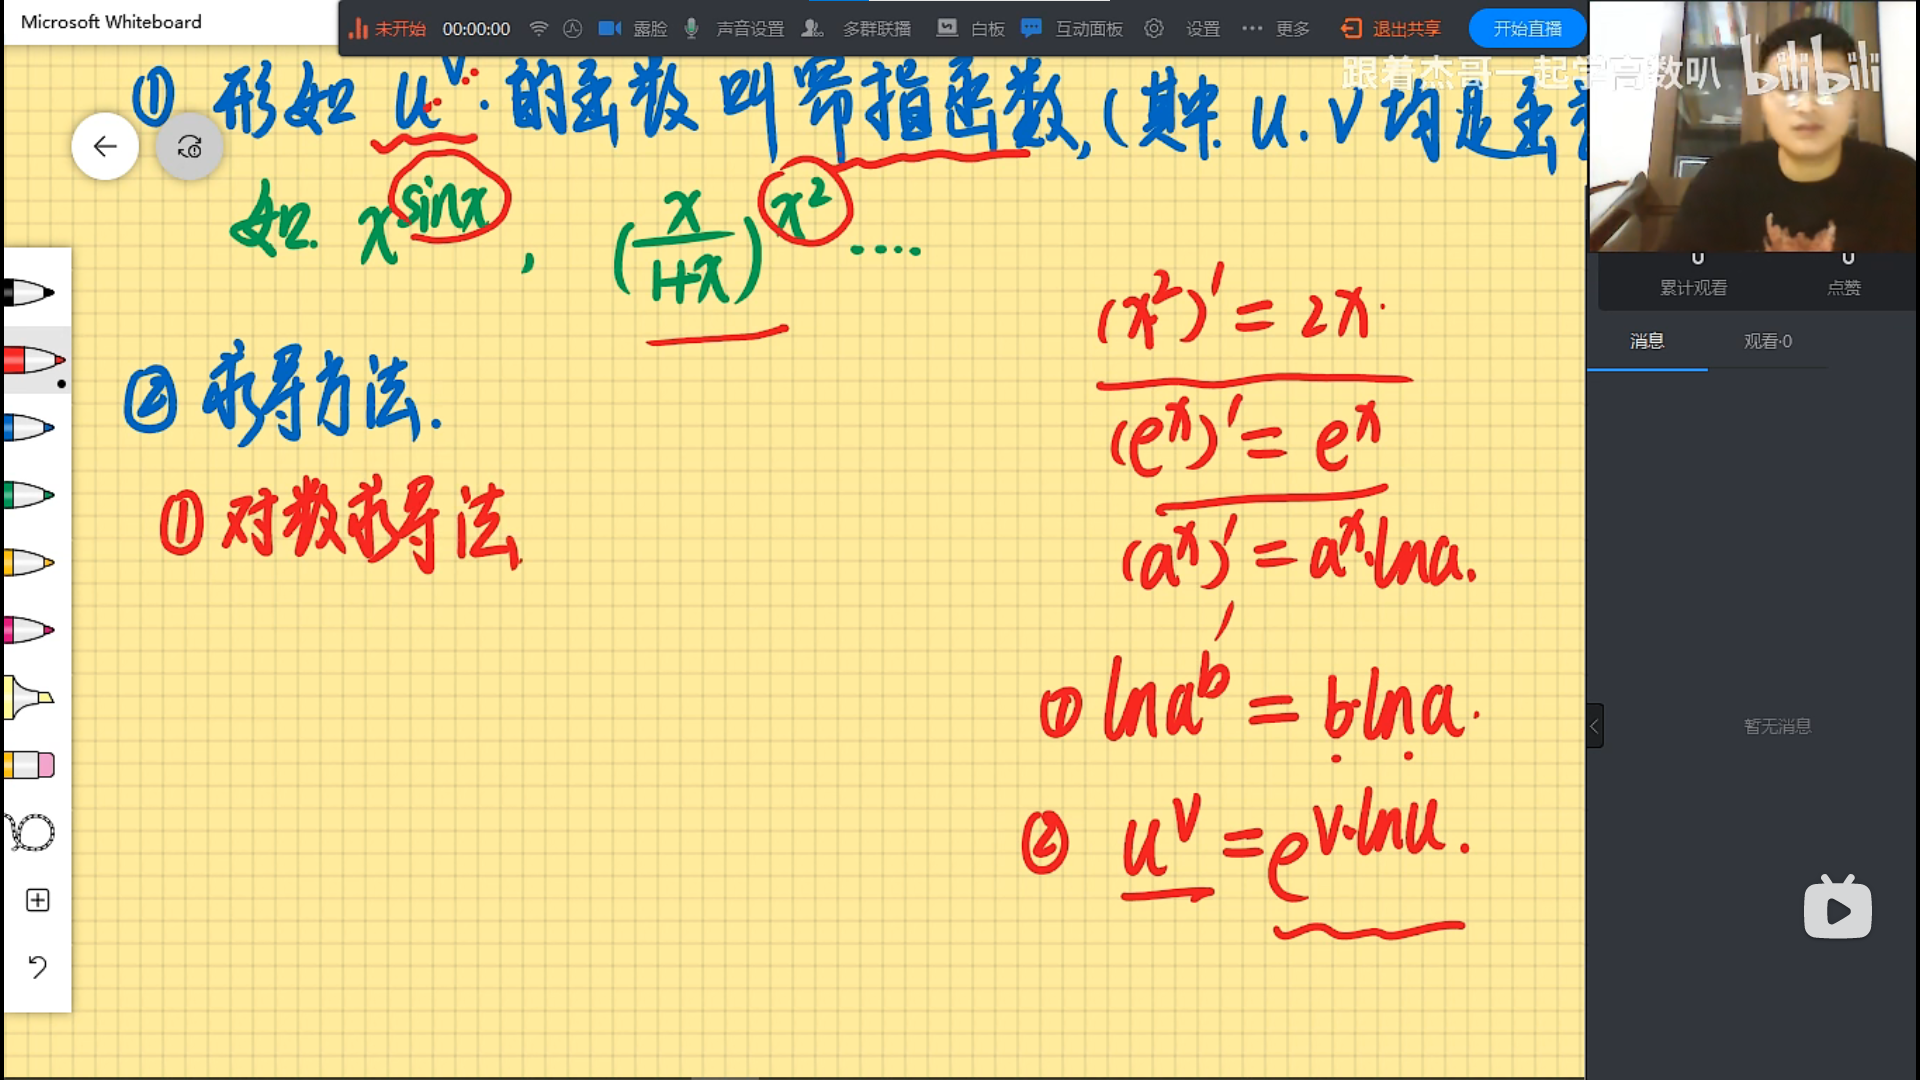 Microsoft Whiteboard
未开始 00:00:00 露脸 声音设置 多群联播 白板 互动面板 设置 更多 退出共享 开始直播
跟着杰哥一起学高数叭 bilibili
① 形如 u^v 的函数叫幂指函数,(其中 u.v 均是函
如. x^sinx , (x/(1+x))^x² ....
② 求导方法.
① 对数求导法
(x²)' = 2x.
(e^x)' = e^x
(a^x)' = a^x·lna.
① lna^b = b·lna.
② u^v = e^v·lnu.
0 0
累计观看 点赞
消息 观看·0
暂无消息